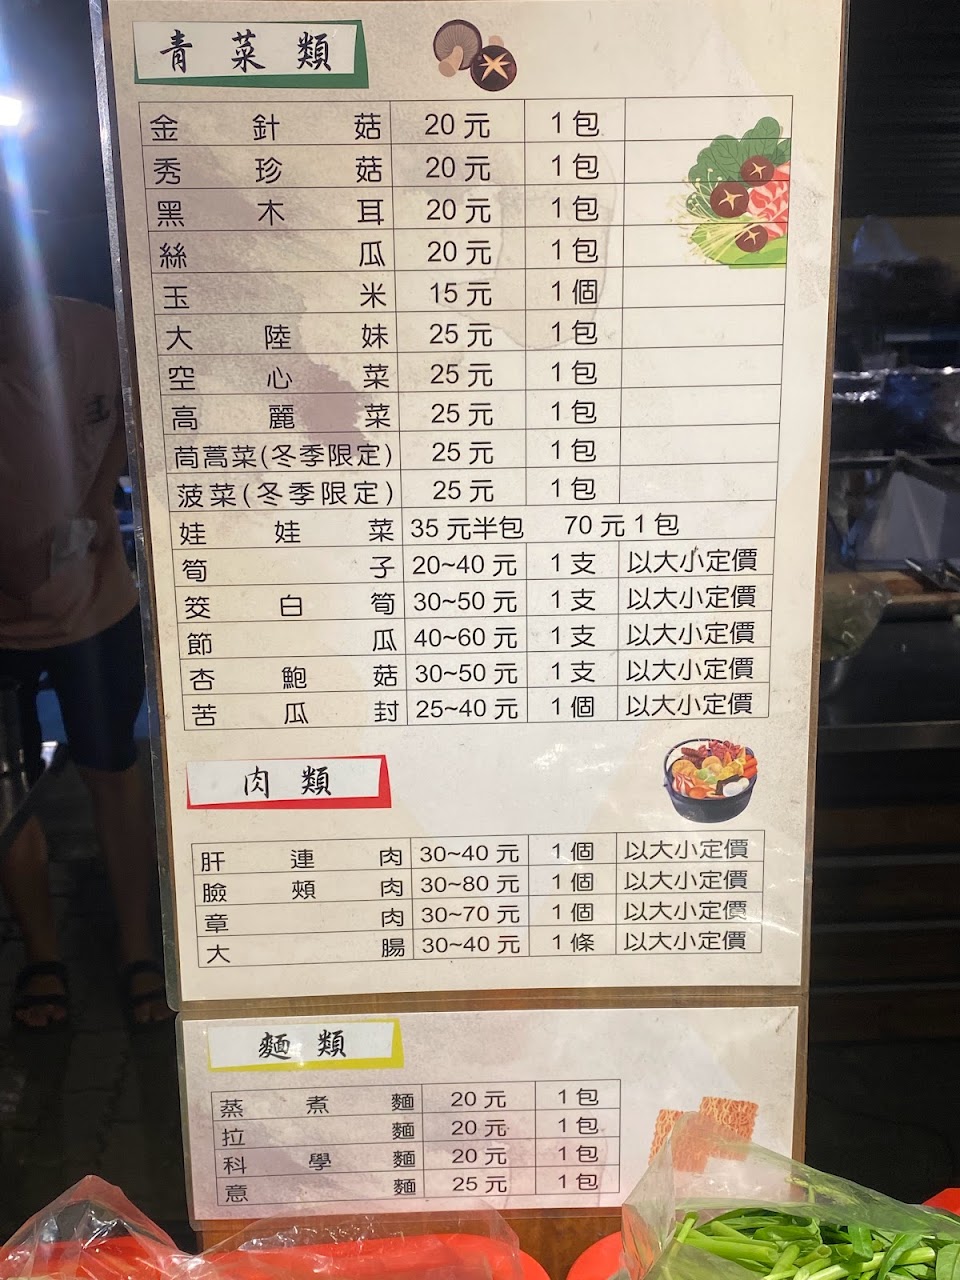 青菜類
金針菇 20元 1包
秀珍菇 20元 1包
黑木耳 20元 1包
絲瓜 20元 1包
玉米 15元 1個
大陸妹 25元 1包
空心菜 25元 1包
高麗菜 25元 1包
茼蒿菜(冬季限定) 25元 1包
菠菜(冬季限定) 25元 1包
娃娃菜 35元半包 70元1包
筍子 20~40元 1支 以大小定價
筊白筍 30~50元 1支 以大小定價
節瓜 40~60元 1支 以大小定價
杏鮑菇 30~50元 1支 以大小定價
苦瓜封 25~40元 1個 以大小定價
肉類
肝連肉 30~40元 1個 以大小定價
臉頰肉 30~80元 1個 以大小定價
章肉 30~70元 1個 以大小定價
大腸 30~40元 1條 以大小定價
麵類
蒸煮麵 20元 1包
拉麵 20元 1包
科學麵 20元 1包
意麵 25元 1包